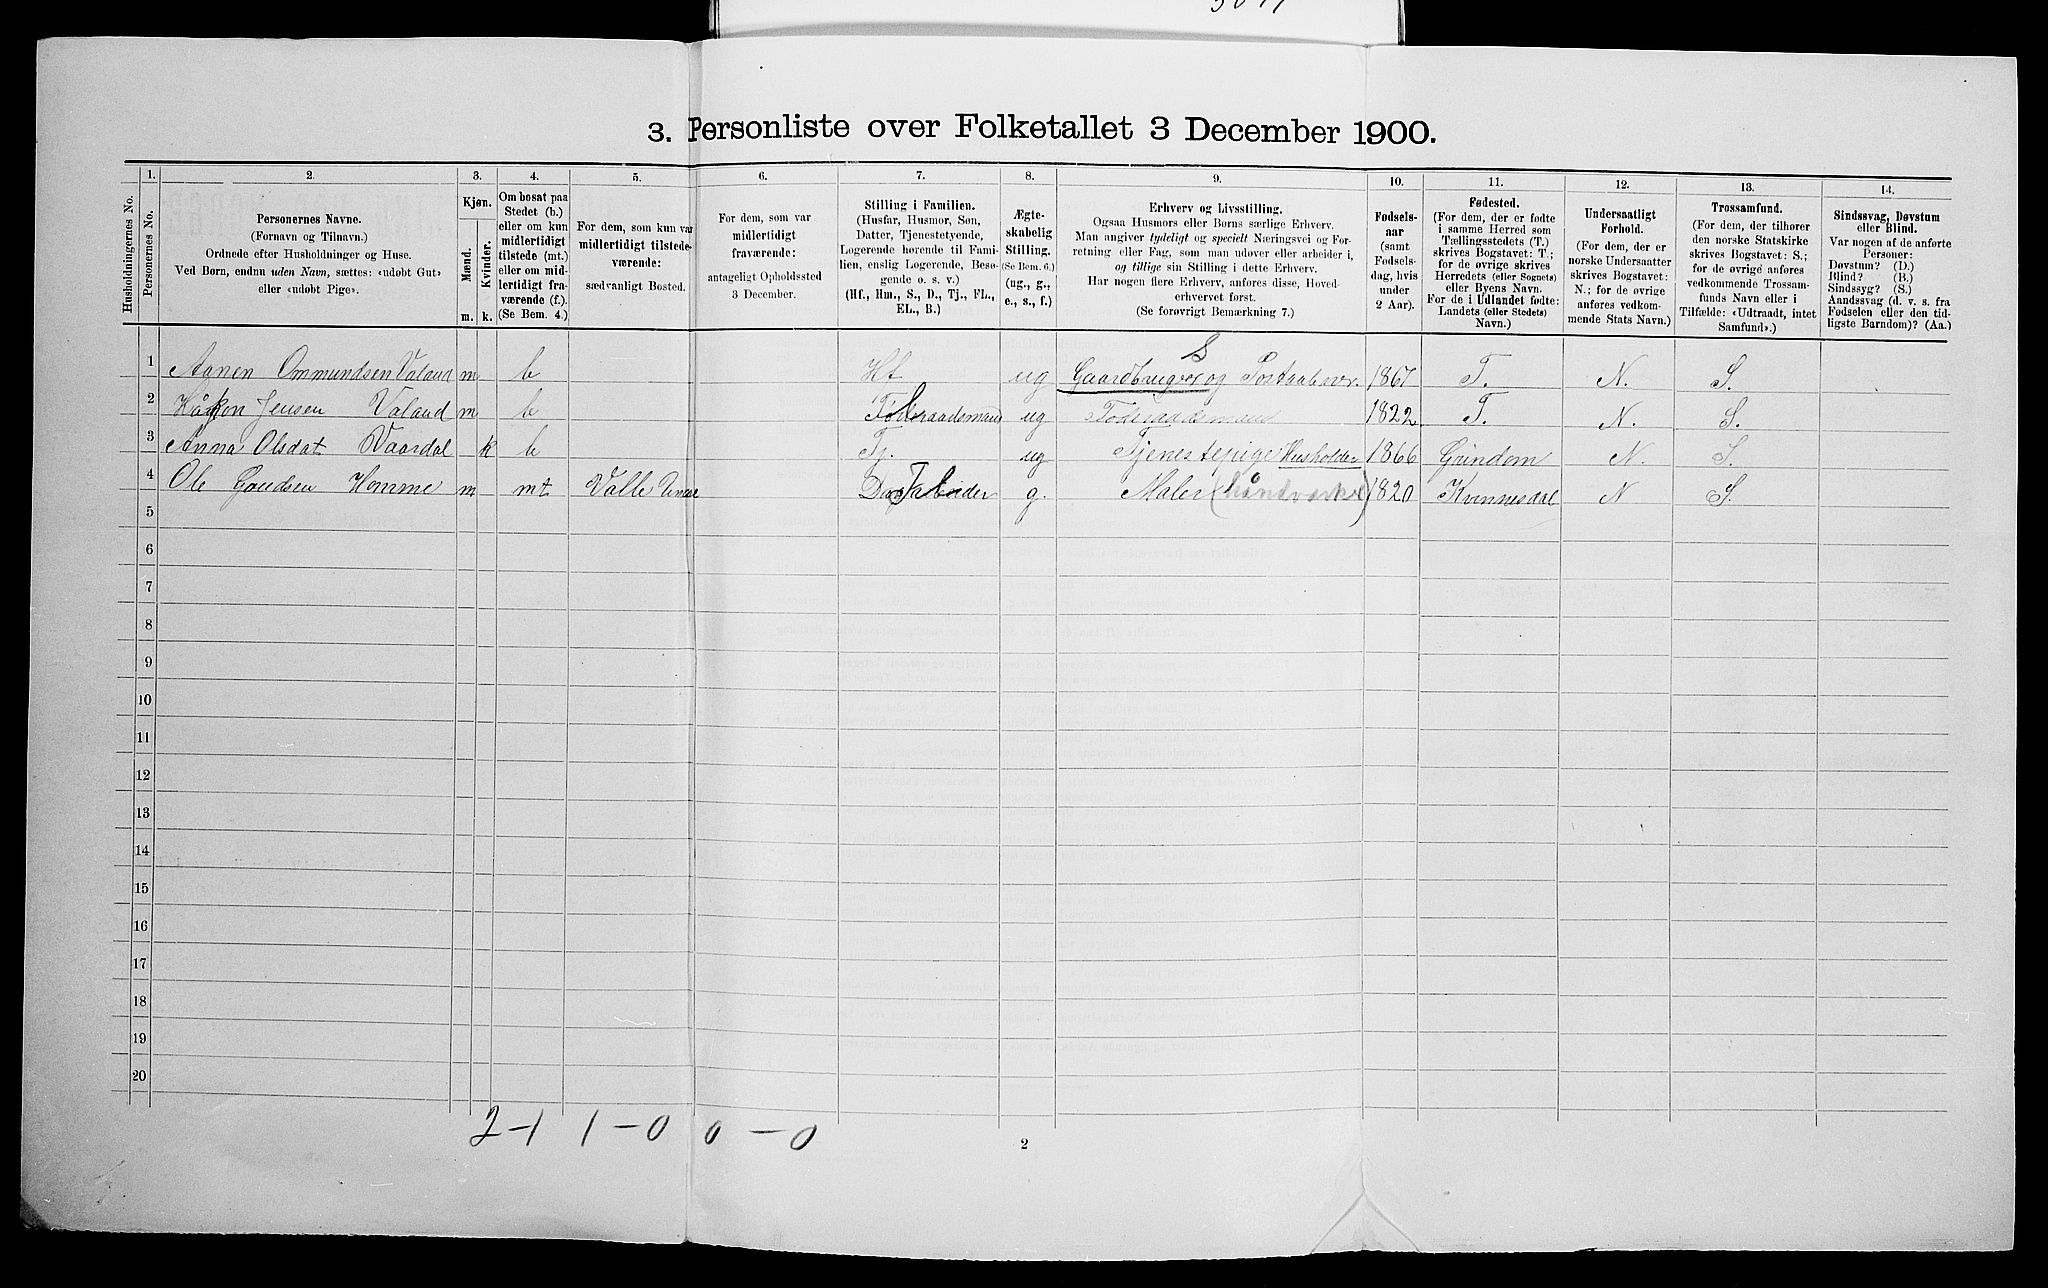 3. Personliste over Folketallet 3 December 1900.
Husholdningernes No.
1.
Personernes No.
2.
Personernes Navne.
(Fornavn og Tilnavn.)
Ordnede efter Husholdninger og Huse.
Ved Børn, endnu uden Navn, sættes: «udøbt Gut»
eller «udøbt Pige».
3.
Kjøn.
Mænd.
Kvinder.
m. k.
4.
Om bosat paa
Stedet (b.)
eller om kun
midlertidigt
tilstede (mt.)
eller om mid-
lertidigt fra-
værende (f.).
(Se Bem. 4.)
5.
For dem, som kun var
midlertidigt tilstede-
værende:
sædvanligt Bosted.
6.
For dem, som var
midlertidigt
fraværende:
antageligt Opholdssted
3 December.
7.
Stilling i Familien.
(Husfar, Husmor, Søn,
Datter, Tjenestetyende,
Logerende hørende til Fami-
lien, enslig Logerende, Besø-
gende o. s. v.)
(Hf., Hm., S., D., Tj., FL.,
EL., B.)
8.
Ægte-
skabelig
Stilling.
(Se Bem. 6.)
(ug., g.,
e., s., f.)
9.
Erhverv og Livsstilling.
Ogsaa Husmors eller Børns særlige Erhverv.
Man angiver tydeligt og specielt Næringsvei og For-
retning eller Fag, som man udøver eller arbeider i,
og tillige sin Stilling i dette Erhverv.
Har nogen flere Erhverv, anføres disse, Hoved-
erhvervet først.
(Se forøvrigt Bemærkning 7.)
10.
Fødsels-
aar
(samt
Fødsels-
dag, hvis
under
2 Aar).
11.
Fødested.
(For dem, der er fødte
i samme Herred som
Tællingsstedets (T.)
skrives Bogstavet: T.;
for de øvrige skrives
Herredets (eller Sognets)
eller Byens Navn.
For de i Udlandet fødte:
Landets (eller Stedets)
Navn.)
12.
Undersaatligt
Forhold.
(For dem, der er
norske Undersaatter
skrives Bogstavet:
N.; for de øvrige
anføres vedkom-
mende Stats Navn.)
13.
Trossamfund.
(For dem, der tilhører
den norske Statskirke
skrives Bogstavet: S.;
for de øvrige anføres
vedkommende Trossam-
funds Navn eller i
Tilfælde: «Udtraadt, intet
Samfund».)
14.
Sindssvag, Døvstum
eller Blind.
Var nogen af de anførte
Personer:
Døvstum? (D.)
Blind? (B.)
Sindssyg? (S.)
Aandssvag (d. v. s. fra
Fødselen eller den tid-
ligste Barndom)? (Aa.)
1 Aanen Ommundsen Valand m b Hf ug Gaardbruger og Postaabner. 1867 T. N. S.
2 Håkon Jensen Valand m b Føderaadsmand ug Føderaadsmand 1822 T. N. S.
3 Anna Olsdat Vaardal k b Tj. ug Tjenestepige Husholder 1866 Grindom N. S.
4 Ole Homme m mt Valle g. Maler (håndverk) 1820 Kvinnesdal N S.
5
6
7
8
9
10
11
12
13
14
15
16
17
18
19
20
2-1 1-0 0-0
2